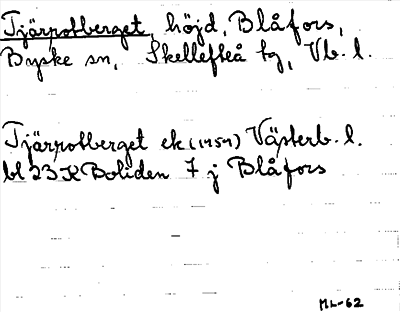 Tjärpotberget, höjd, Blåfors,
Byske sn, Skellefteå tg, Vb. l.
Tjärpotberget ek (1959) Västerb. l.
bl 23 K Boliden 7 j Blåfors
ML-62